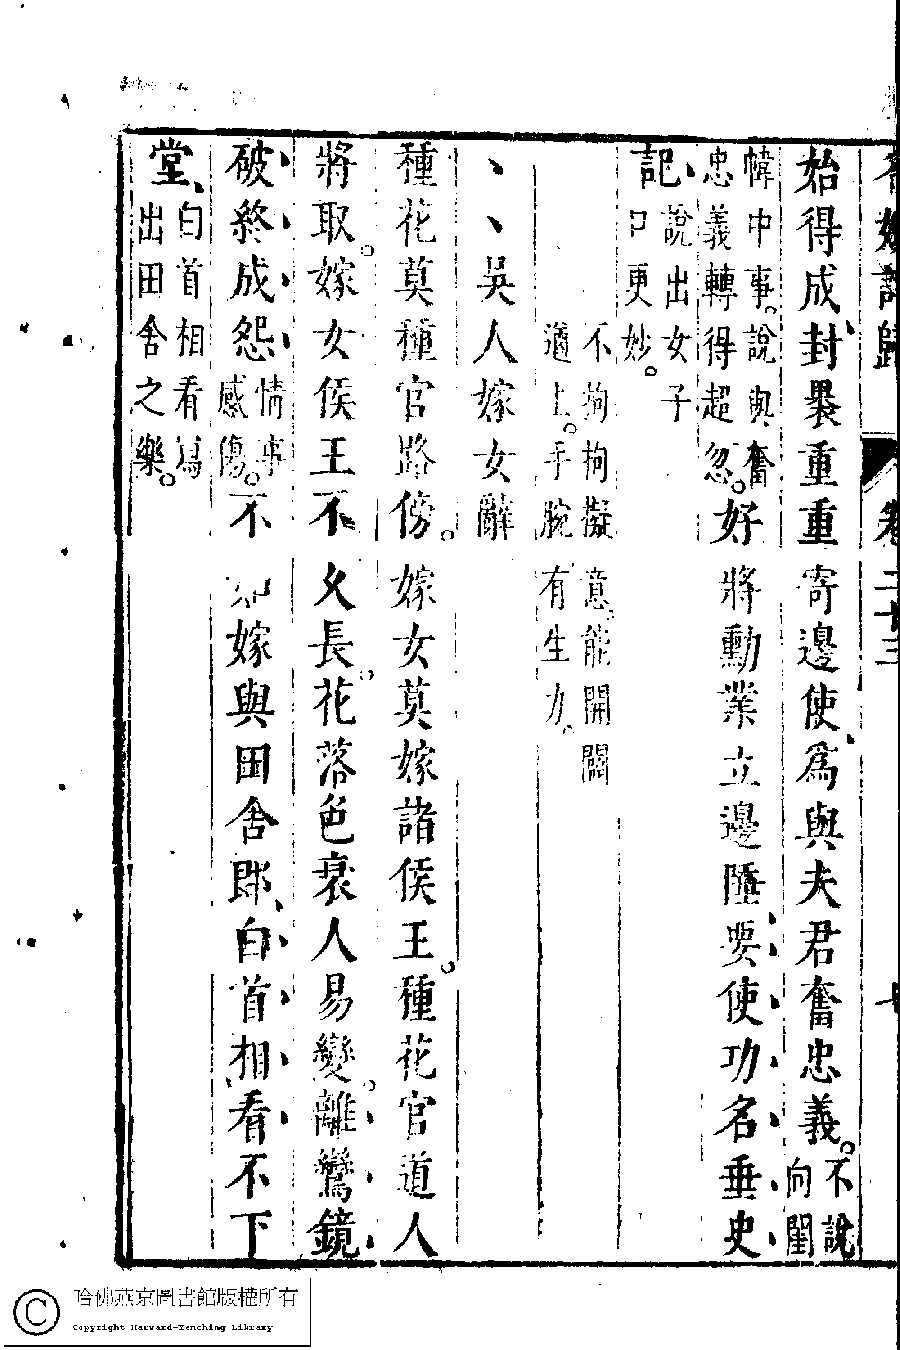 名媛詩歸 卷二十三
始得成封褁重重寄邊使為與夫君奮忠義不說向閨
幃中事說與奮忠義轉得超忽好將勳業立邊陲要使功名垂史
記說出女子口更妙
不拘拘擬意能開闢遒上手腕有生力
吳人嫁女辭
種花莫種官路傍嫁女莫嫁諸侯王種花官道人
將取嫁女侯王不久長花落色衰人易變離鸞鏡
破終成怨情事感傷不如嫁與田舍郎白首相看不下
堂白首相看寫出田舍之樂
哈佛燕京圖書館版權所有
Copyright Harvard-Yenching Library